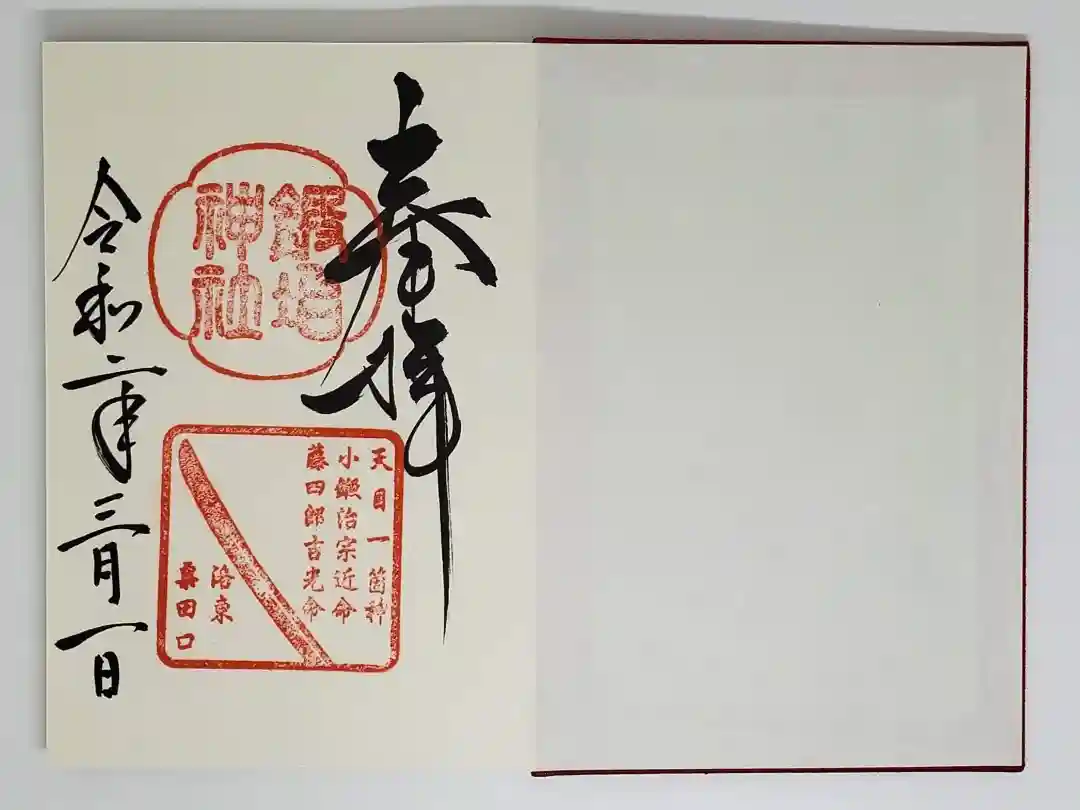 奉拝
鍛冶
神社
天目一箇神
小鍛治宗近命
藤四郎吉光命
洛東
粟田口
令和二年三月一日